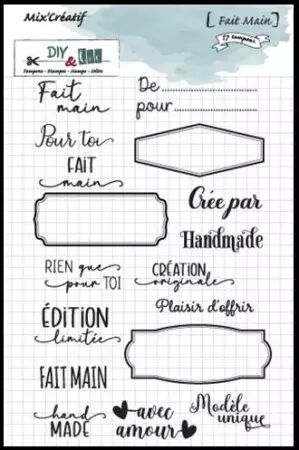 Mix'Créatif
[ Fait Main ]
17 tampons
DIY
&
Tampons - Stampos - Stamps - Sellos
Fait
main
De
pour
Pour toi
FAIT
main
Crée par
Handmade
RIEN que
pour TOI
CRÉATION
originale
Plaisir d'offrir
ÉDITION
limitée
FAIT MAIN
hand
MADE
avec
amour
Modèle
unique